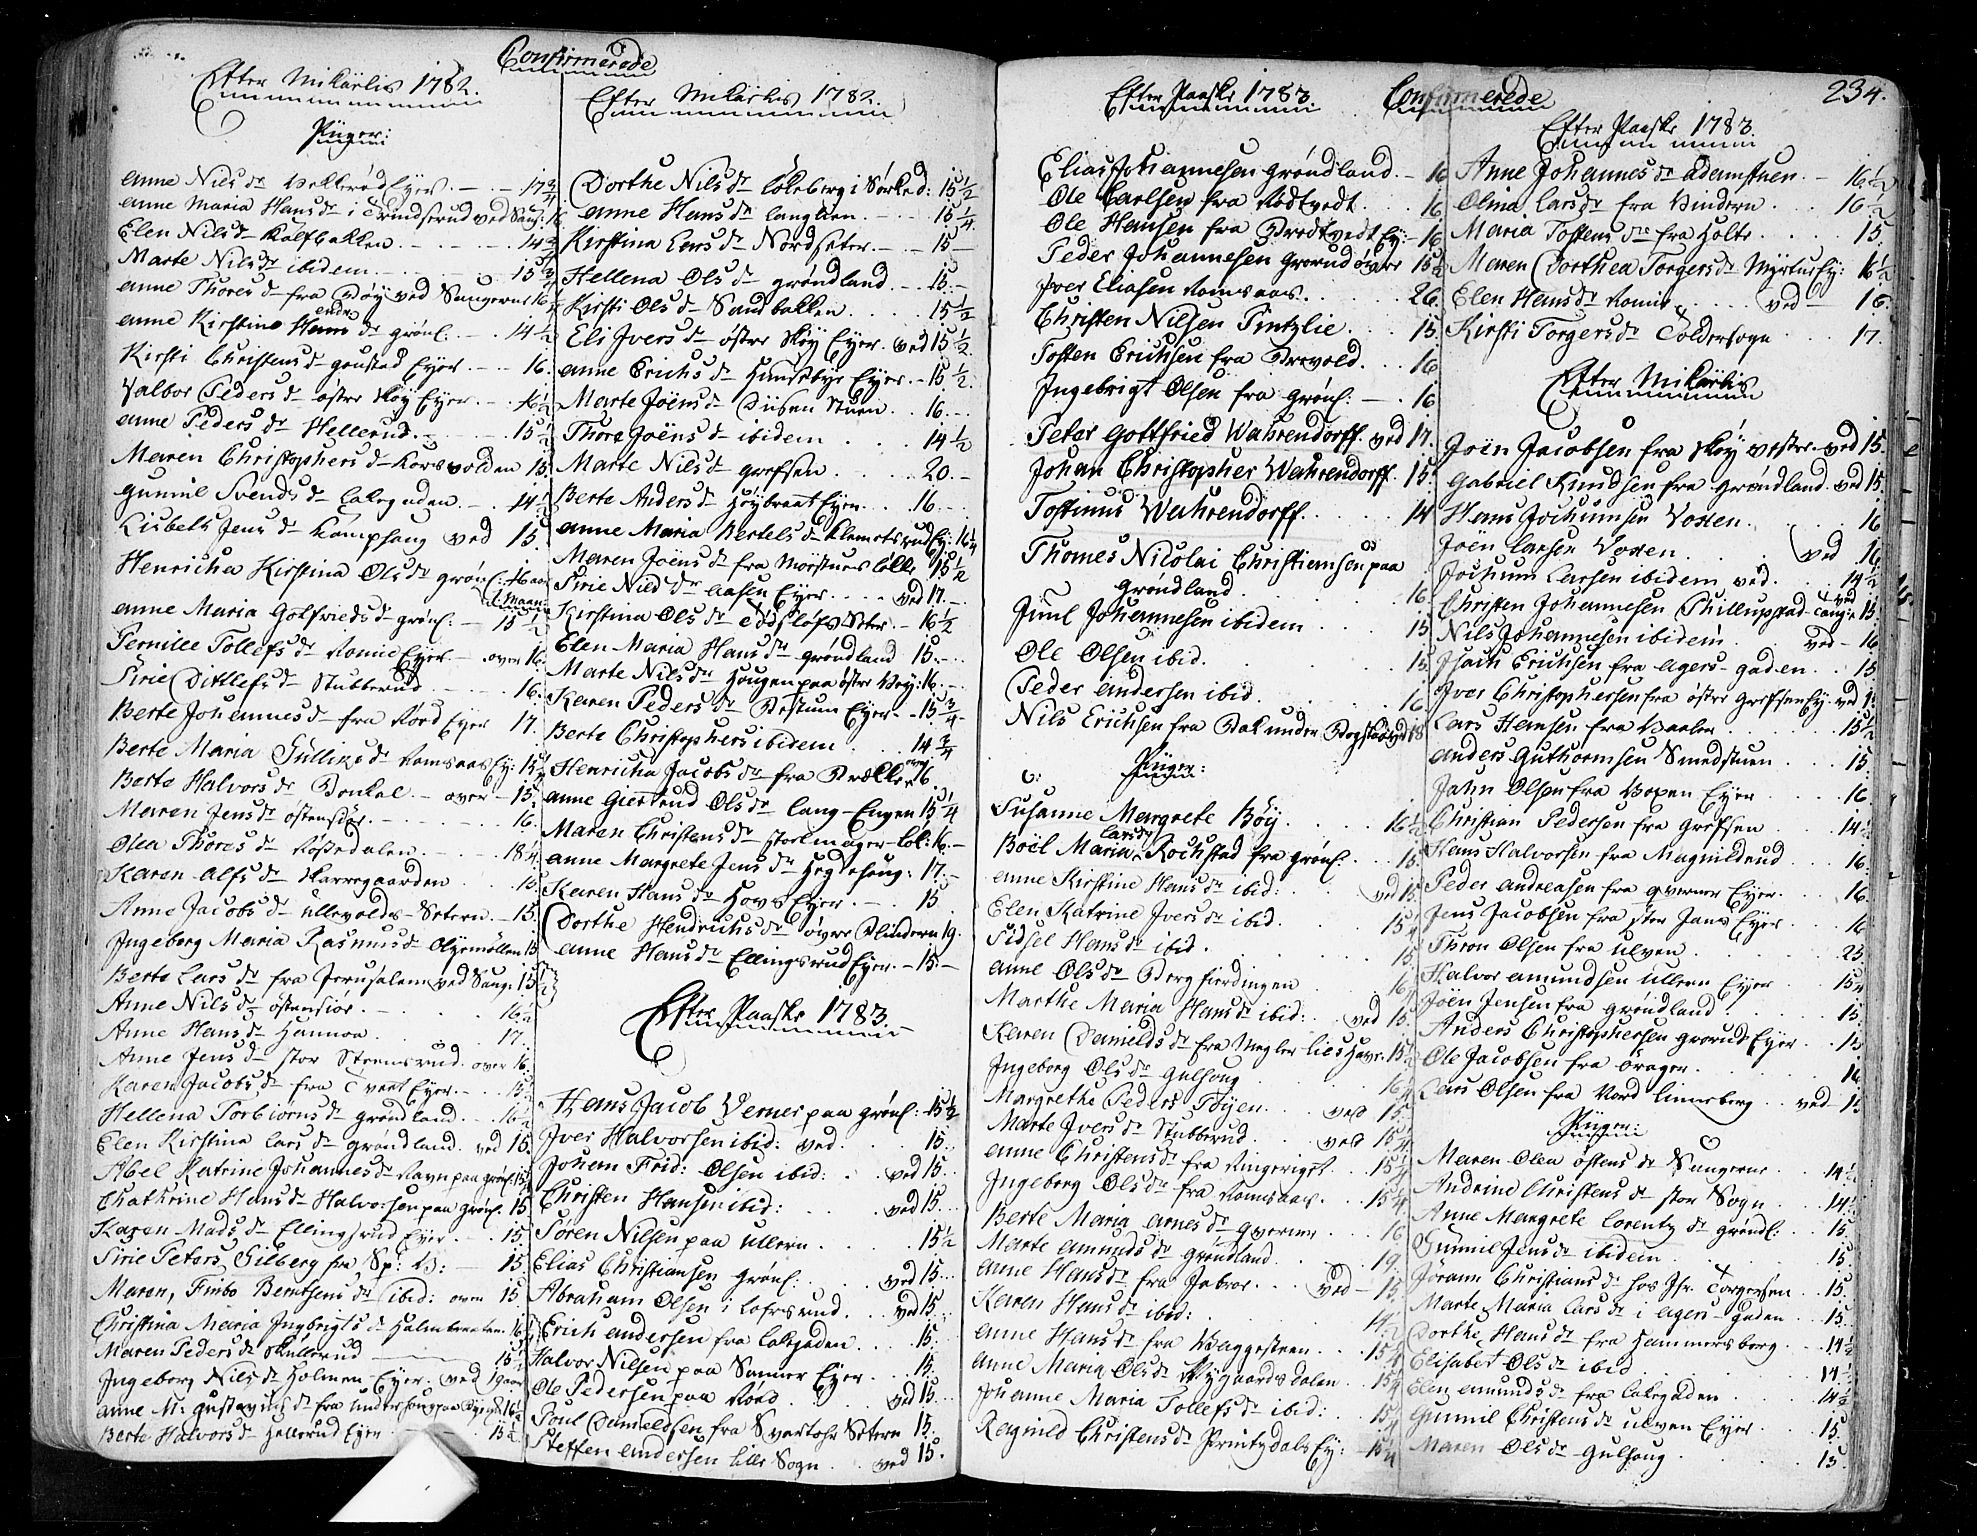 Confirmerede
Efter Mikaelis 1782.
Piiger:
Anne Niels dr Eyer. - - 17 3/4
Anne Maria Hans dr i Trindsrud ved Saug: 16
Elen Nils dr Kalfbakken - - - 14 3/4
Marte Nils dr ibidem - - - 15 3/4
Anne Thores d fra Bøy ved Saugerne 16
Anne Kirstine dr grønl. - - 14 1/2
Kirsti Christens d goustad Eyer - - 16.
Valbor Peders d østre Skøy Eyer. - - 16 1/2
Anne Peders dr Hellerud. - - - 15 1/2
Maren Christophers d Korsvolden 15.
Gunnil Svends d Lakegaden - - 14 1/2
Lisbeth Jens dr Kamphoug ved 15.
Henricha Kirstina Ols dr grønl: 16 aar
1. Maan:
Anne Maria Gotfrieds d grønl: - 15 1/2
Pernille Tollefs dr Romie Eyer - over 16.
Sirie Ditlefs d Stubberud - - - 16.
Berte Johannes d fra Eyer 17.
Berte Maria Gulliks d Romsaas Ey: 15 1/2
Berte Halvors dr Bonkal. - over - 15.
Maren Jens d østensiør - - - 16.
Olea Thores d - - 18 1/4
Karen Alfs d Karregaarden 15.
Anne Jacobs d Ullevolds-Setern. - 15.
Ingeborg Maria Rasmus d Olyemøllen 15
Berte Lars dr fra Jerusalem ved Saug. 15 1/2
Anne Nils d østensiør - - - 16 1/2
Anne Hans d 17.
Anne Jens d stor Strømsrud. over 16.
Karen Jacobs d fra Tvæt Eyer - - 15 1/2
Hellena Torbiørns d grøndland - - 16 1/2
Elen Kirstina Lars d grøndland ved 15.
Abel Katrine Johannes d Ravn paa grønl. 15 1/2
Chathrine Hans d Halvorsen paa grønl. 15
Karen Mads d Ellingsrud Eyer - 15.
Sirie Peters Gilberg fra Sp: V: - 15
Maren, Finbo Berntsens dr ibid: over 15.
Christina Maria Ingbrigts d Holmbraaten 16
Maren Peders d Skullerud 15 1/2
Ingeborg Nils d Holmen Eyer. ved
Anne M: Gustavus d fra 16 1/2
Berte Halvors d Hellerud Eyer 15 1/2
Efter Mikaelis 1782.
Dorthe Nils dr Løkeberg i Sørked: 15 1/2
Anne Hans dr Langlien - - 15 1/4
Kirstina Lars dr Nordseter - - 15 -
Hellena Ols d grøndland - 15. -
Kirsti Ols d Sandbakken . . . 15 1/2
Eli Ivers d østre Skøy Eyer. ved 15 1/2
Anne Erichs d Eyer. - 15 1/2.
Marte Joens d Stuen . . 16. - .
Thore Joens d ibidem . . . 14 1/2
Marte Nils d grefsen . . . . 20. -
Berte Anders d Høybraat Eyer . . . 16. . .
Anne Maria Bertels d Klemetsrud Ey: 16 1/4
Maren Joens d fra 15 1/2
Sirie Niels dr Aasen Eyer - - - ved 17. -
Kirstina Ols dr Seter. - 16 1/2
Elen Maria Hans dr grøndland 15. - .
Marte Nils d Hougen paa østre Bøy: 16. -
Karen Peders d Eyer. - - 15 3/4 -
Berte Christophers ibidem . . . 14 3/4
Henricha Jacobs d fra 16
Anne Giertrud Ols dr Lang-Engen 15 1/4
Maren Christens d 16. -
Anne Margrete Jens dr Hegdehoug: 17. -
Karen Hans dr Hovs Eyer. - . 15.
Dorthe Hendrichs dr øvre Blindern 19.
Anne Hans dr Ellingsrud Eyer. - 15. -
Efter Paaske 1783.
Hans Jacob Verner paa grønl: - 15 1/2
Iver Halvorsen ibid: ved . 15. .
Johan Frid: Olsen ibid: . . ved 15. . .
Christen Hansen ibid: . . . ved 15. . .
Søren Nilsen paa Ullern . . . 15 1/2
Elias Christiansen grønl. . . . ved 15. . .
Abraham Olsen i Lofsrud. . . ved 15. . .
Erich Andersen fra Lakegaden . . . 15. .
Halvor Nilsen paa Sonner Eyer . . . 15.
Ole Pedersen paa . . . . ved 15. .
Poul Danieldsen fra Svartorr Setern 15.
Steffen Andersen lille Sogn . . ved 15.
Confirmerede
234.
Efter Paaske 1783.
Elias Johannesen Grøndland. - 16
Ole Carlsen fra Rodtvedt . . . 16
Ole Hansen fra Bredtvedt Ey: - 16.
Peder Johannesen Grorud over 15 1/2
Iver Eliasen Romsaas . . . . 26.
Christen Nilsen . . . 15.
Tosten Erichsen fra Brevold. . . . 16
Ingebrigt Olsen fra Grønl. - . 16
Peter Gottfried Wahrendorff. ved 17.
Johan Christopher Wahrendorff. 15.
Tostinus Wahrendorff. . . . . 14
Thomes Nicolai Christiansen paa
Grøndland . . . . 16.
Juul Johannesen ibidem . . . . 15
Ole Olsen ibid. . . . . 15.
Peder Andersen ibid . . . . 16.
Nils Erichsen fra Bak under Bogstad ved 18
Piiger:
Susanne Margrete Bøy . . . . 16 1/2
Boel Maria Larsdr Rochstad fra grønl. . . 15.
Anne Kirstine Hans dr ibid: . . . ved 15.
Elen Katrine Ivers dr ibid . . . . 15 1/4
Sidsel Hans d ibid. . . . . 15.
Anne Ols dr Bergfierdingen . . . 16 1/4
Marthe Maria Hans dr ibid: ved 15.
Karen Danields dr fra Megler Lies Havn. 15 1/2
Ingeborg Ols dr Gulhoug . . . . 16 1/4
Margrethe Peders Tøyen . . . ved 15.
Marte Ivers dr Stubberud . . . ved 15 1/4
Anne Christens dr fra Ringeriget . . 15 1/2
Ingeborg Ols dr fra Romsaas . . . 15 1/4
Berte Maria Arnes dr Qverner . . . 16
Marte Amunds dr Grøndland . . . 19.
Anne Hans d fra Jabror. . . ved - 15.
Karen Hans d ibid: . . . . 14 1/2
Anne Hans d fra Waggesteen . . . 15 1/4
Anne Maria Ols dr Nygaardsdalen . . 15 1/4
Johanne Maria Tollefs dr ibid: . . 15 1/4
Ragnild Christens dr Prinsdals Ey: - 15 1/4
Efter Paaske 1783.
Anne Johannes dr Adamstuen. - 16 1/2
Olina Lars dr fra Vindern . . . 16 1/2
Maria Tostens dr fra Holte . . . . 15
Maren Dorthea Torgers dr Myrlur Ey: 16 1/2
Elen Hans dr Romie . . . . ved - 16.
Kirsti Torgers dr Toldersogn . . . 17.
Efter Mikaelis
Joen Jacobsen fra Skøy vestre ved 15.
Gabriel Knudsen fra Grøndland. ved 15.
Hans Jochumsen Voxen . . . . 16
Joen Larsen Voxen . . . ved 16.
Jochum Larsen ibidem ved . . . 14 1/2
Christen Johannesen Phillupstad ved Tang: 15.
Nils Johannesen ibidem . . . ved - 16
Isach Erichsen fra Agers-gaden . . . 15.
Iver Christophersen fra østre Grefsen Ey. ved 1
Lars Hansen fra Baalen . . . . 15 1/2
Anders Guthormsen Smedstuen . . . 15.
Jahn Olsen fra Voxen Eyer . . . . 16.
Christian Pedersen fra Grefsen . . . . 14 1/2
Hans Halvorsen fra Magnildrud . . . 16.
Peder Andreasen fra Qverner Eyer. . . . 16.
Jens Jacobsen fra stor Jans Eyer . . . 16
Thron Olsen fra Ulven . . . . 23.
Halvor Amundsen Ullern Eyer . . . 15 1/4
Joen Jensen fra grøndland . . . . 15.
Anders Christophersen Grorud Eyer . . 15
Ole Jacobsen fra Brager. . . . . 16
Lars Olsen fra Nord Linnerberg . . ved 15
Piigen:
Maren Olea østens dr Saugerne . . . 14 1/2
Andrine Christens dr stor Sogn . . . 14 1/2
Anne Margrete Lorentz dr grøndl: . . 15.
Gunnil Jens dr ibidem . . . . 15.
Jørann Christians dr hos Hr. Torgersen . . 15.
Marte Maria Lars dr i Agers-gaden . . . 15.
Dorthe Hans dr fra Hammersborg . . . 14 1/2
Elisabet Ols dr ibid . . . . 14 1/2
Elen Amunds dr fra Lakegaden . . . 14 1/2
Gunnil Christens dr Ulven Eyer . . . 15.
Maren Ols dr Gulhoug . . . . 15.